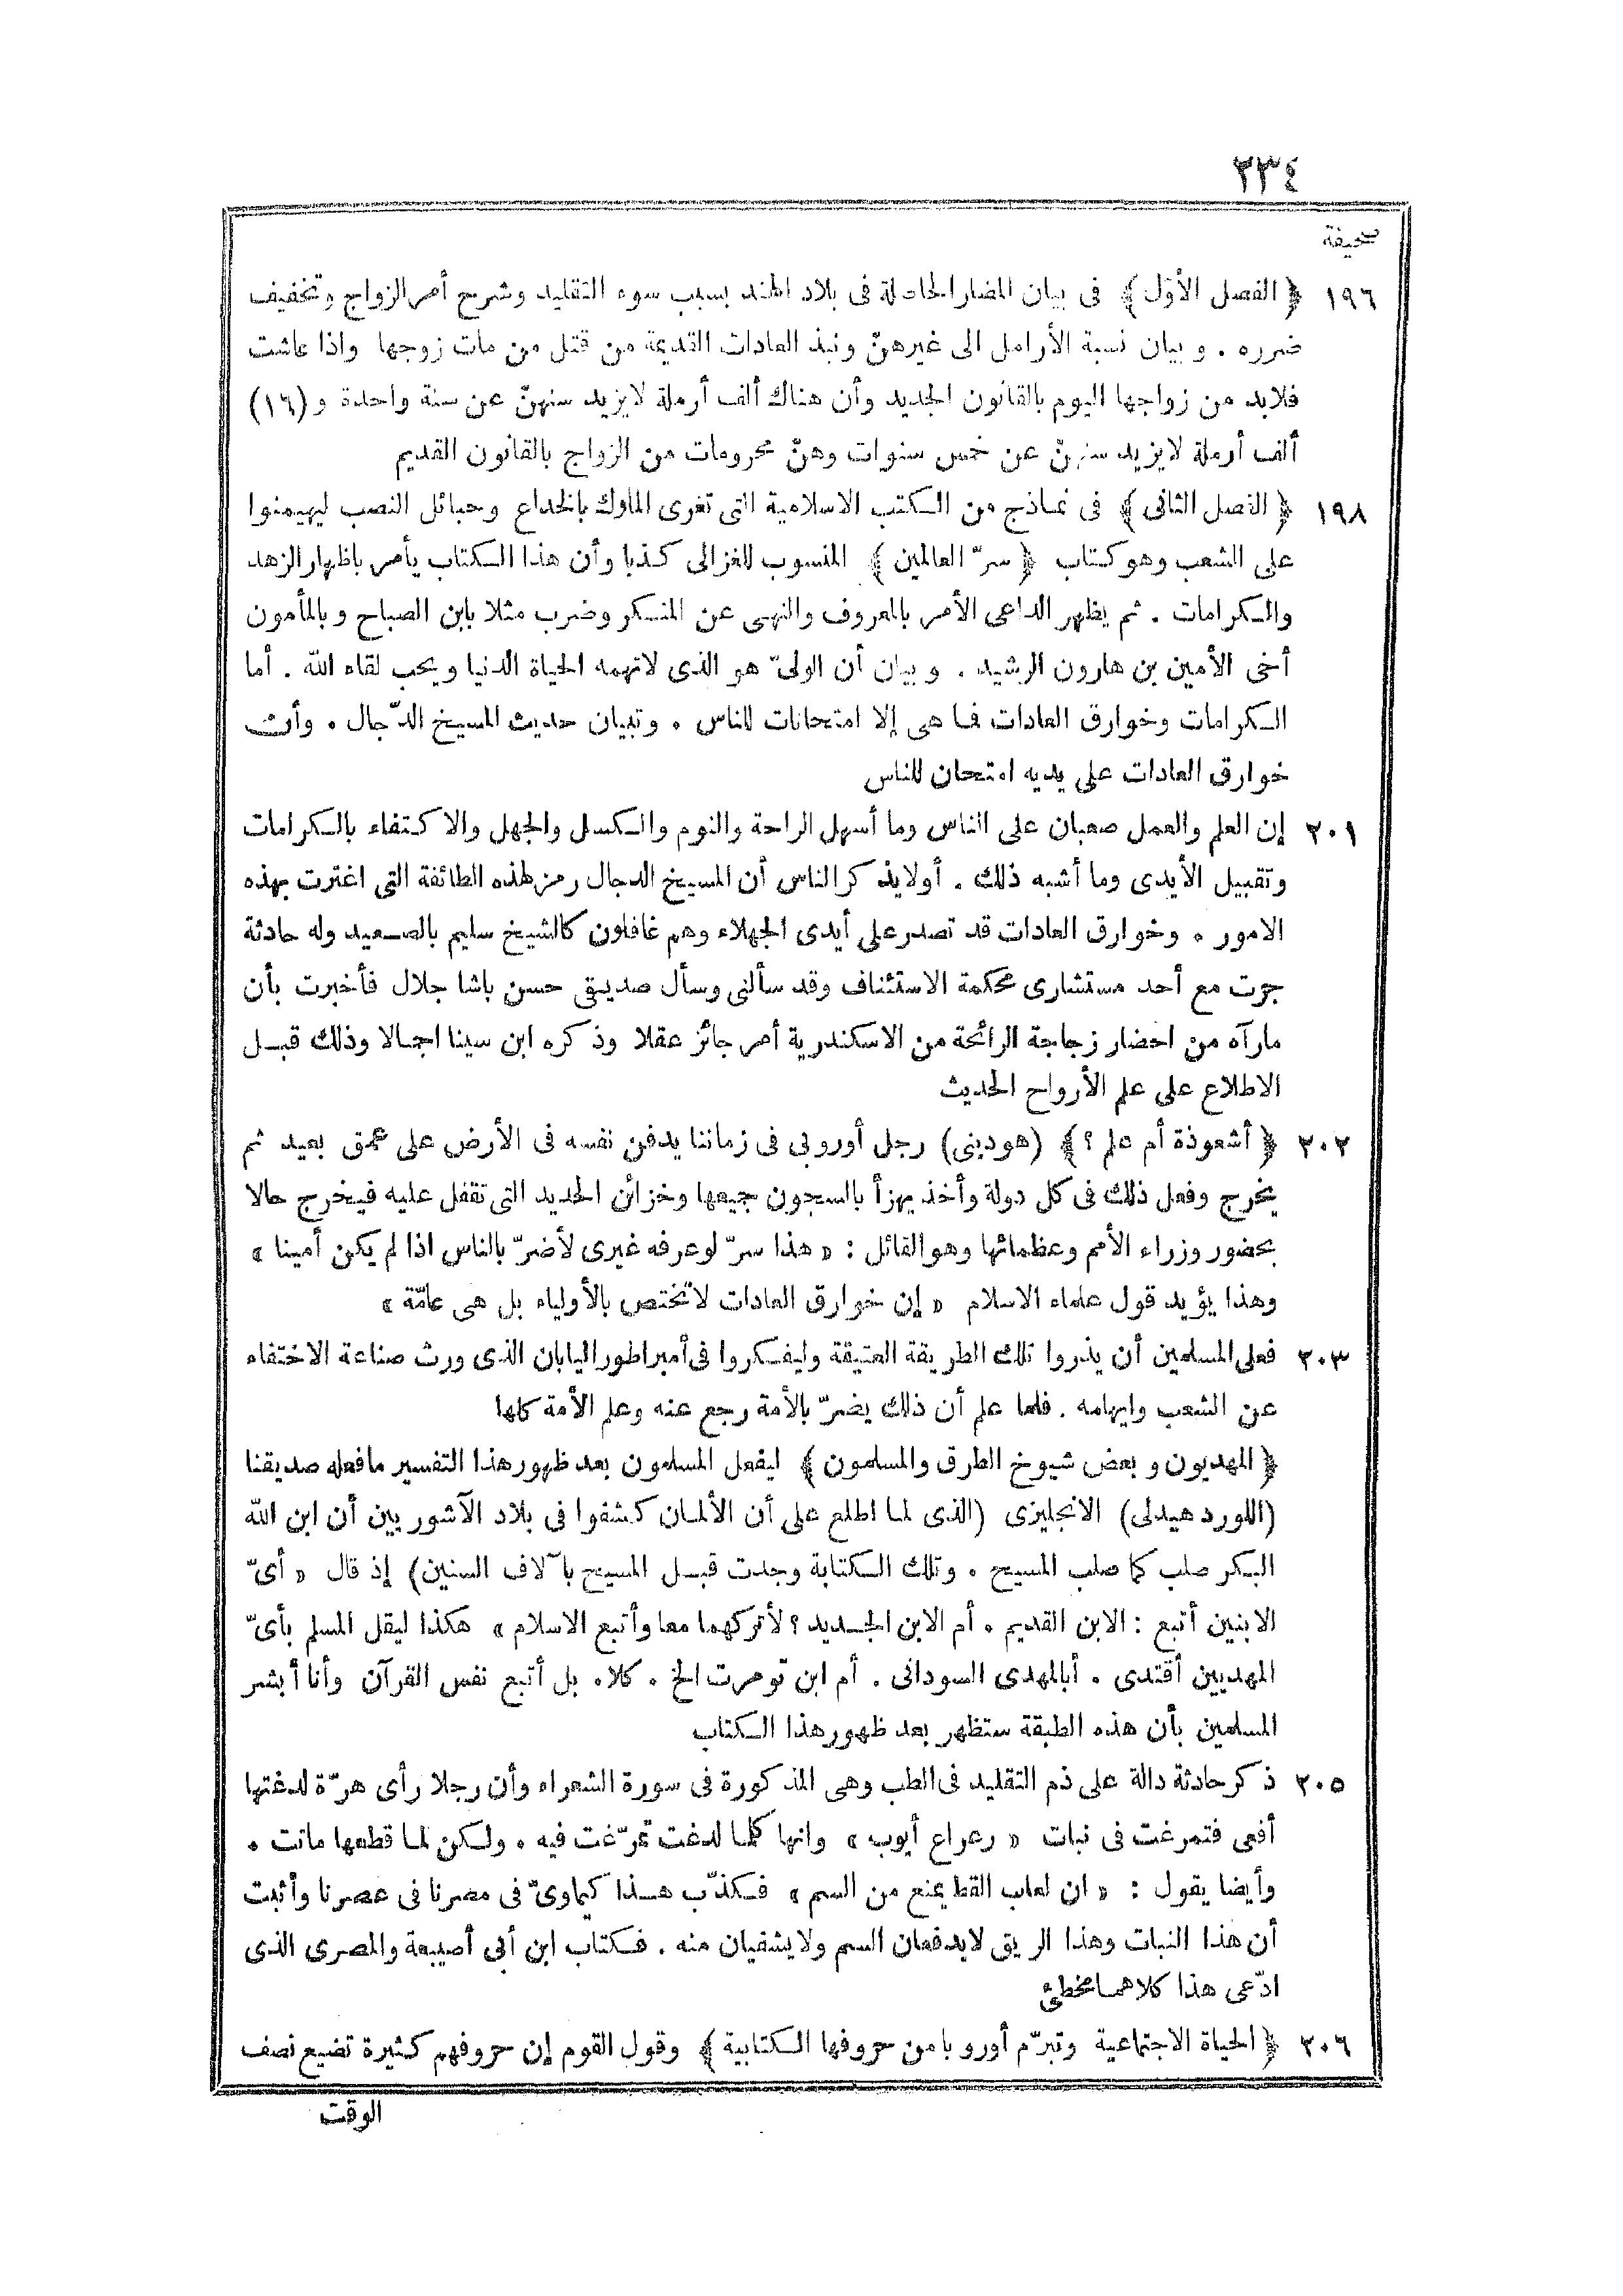 ٢٣٤
صحيفة
١٩٦ ﴿ الفصل الأوّل ﴾ فى بيان المضار الحاصلة فى بلاد الهند بسبب سوء التقليد وشرح أمر الزواج وتخفيف
ضرره . وبيان نسبة الأرامل الى غيرهنّ ونبذ العادات القديمة من قتل من مات زوجها واذا عاشت
فلابد من زواجها اليوم بالقانون الجديد وأن هناك ألف أرملة لايزيد سنهنّ عن سنة واحدة و (١٦)
ألف أرملة لايزيد سنهنّ عن خمس سنوات وهنّ محرومات من الزواج بالقانون القديم
١٩٨ ﴿ الفصل الثانى ﴾ فى نماذج من الكتب الاسلامية التى تغرى الملوك بالخداع وحبائل النصب ليهيمنوا
على الشعب وهو كتاب ﴿ سرّ العالمين ﴾ المنسوب للغزالى كذبا وأن هذا الكتاب يأمر باظهار الزهد
والكرامات . ثم يظهر الداعى الأمر بالمعروف والنهى عن المنكر وضرب مثلا بابن الصباح وبالمأمون
أخى الأمين بن هارون الرشيد . وبيان أن الولىّ هو الذى لاتهمه الحياة الدنيا ويحب لقاء الله . أما
الكرامات وخوارق العادات فما هى إلا امتحانات للناس . وتبيان حديث المسيخ الدّجال . وأن
خوارق العادات على يديه امتحان للناس
٢٠١ إن العلم والعمل صعبان على الناس وما أسهل الراحة والنوم والكسل والجهل والاكتفاء بالكرامات
وتقبيل الأيدى وما أشبه ذلك . أولايذكر الناس أن المسيخ الدجال رمز لهذه الطائفة التى اغترت بهذه
الامور . وخوارق العادات قد تصدر على أيدى الجهلاء وهم غافلون كالشيخ سليم بالصعيد وله حادثة
جرت مع أحد مستشارى محكمة الاستئناف وقد سألنى وسأل صديقى حسن باشا جلال فأخبرت بأن
مارآه من احضار زجاجة الرائحة من الاسكندرية أمر جائز عقلا وذكره ابن سينا اجمالا وذلك قبل
الاطلاع على علم الأرواح الحديث
٢٠٢ ﴿ أشعوذة أم علم ؟ ﴾ (هودينى) رجل أوروبى فى زماننا يدفن نفسه فى الأرض على عمق بعيد ثم
يخرج وفعل ذلك فى كل دولة وأخذ يهزأ بالسجون جميعها وخزائن الحديد التى تقفل عليه فيخرج حالا
بحضور وزراء الأمم وعظمائها وهو القائل : « هذا سرّ لوعرفه غيرى لأضرّ بالناس اذا لم يكن أمينا »
وهذا يؤيد قول علماء الاسلام « إن خوارق العادات لاتختص بالأولياء بل هى عامّة »
٢٠٣ فعلى المسلمين أن يذروا تلك الطريقة العتيقة وليفكروا فى أمبراطور اليابان الذى ورث صناعة الاختفاء
عن الشعب وايهامه . فلما علم أن ذلك يضرّ بالأمة رجع عنه وعلم الأمة كلها
﴿ المهديون وبعض شيوخ الطرق والمسلمون ﴾ ليفعل المسلمون بعد ظهور هذا التفسير مافعله صديقنا
(اللورد هيدلى) الانجليزى (الذى لما اطلع على أن الألمان كشفوا فى بلاد الآشوريين أن ابن الله
البكر صلب كما صلب المسيح . وتلك الكتابة وجدت قبل المسيح بآلاف السنين) إذ قال « أىّ
الابنين أتبع : الابن القديم . أم الابن الجديد ؟ لأتركهما معا وأتبع الاسلام » هكذا ليقل المسلم بأىّ
المهديين أقتدى . أبالمهدى السودانى . أم ابن تومرت الخ . كلا. بل أتبع نفس القرآن وأنا أبشر
المسلمين بأن هذه الطبقة ستظهر بعد ظهور هذا الكتاب
٢٠٥ ذكر حادثة دالة على ذم التقليد فى الطب وهى المذكورة فى سورة الشعراء وأن رجلا رأى هرّة لدغتها
أفعى فتمرغت فى نبات « رعراع أيوب » وانها كلما لدغت تمرّغت فيه . ولكن لما قطعها ماتت .
وأيضا يقول : « ان لعاب القط يمنع من السم » فكذّب هذا كيماوىّ فى مصرنا فى عصرنا وأثبت
أن هذا النبات وهذا الريق لايدفعان السم ولايشفيان منه . فكتاب ابن أبى أصيبعة والمصرى الذى
ادّعى هذا كلاهما مخطئ
٢٠٦ ﴿ الحياة الاجتماعية وتبرّم أوروبا من حروفها الكتابية ﴾ وقول القوم إن حروفهم كثيرة تضيع نصف
الوقت